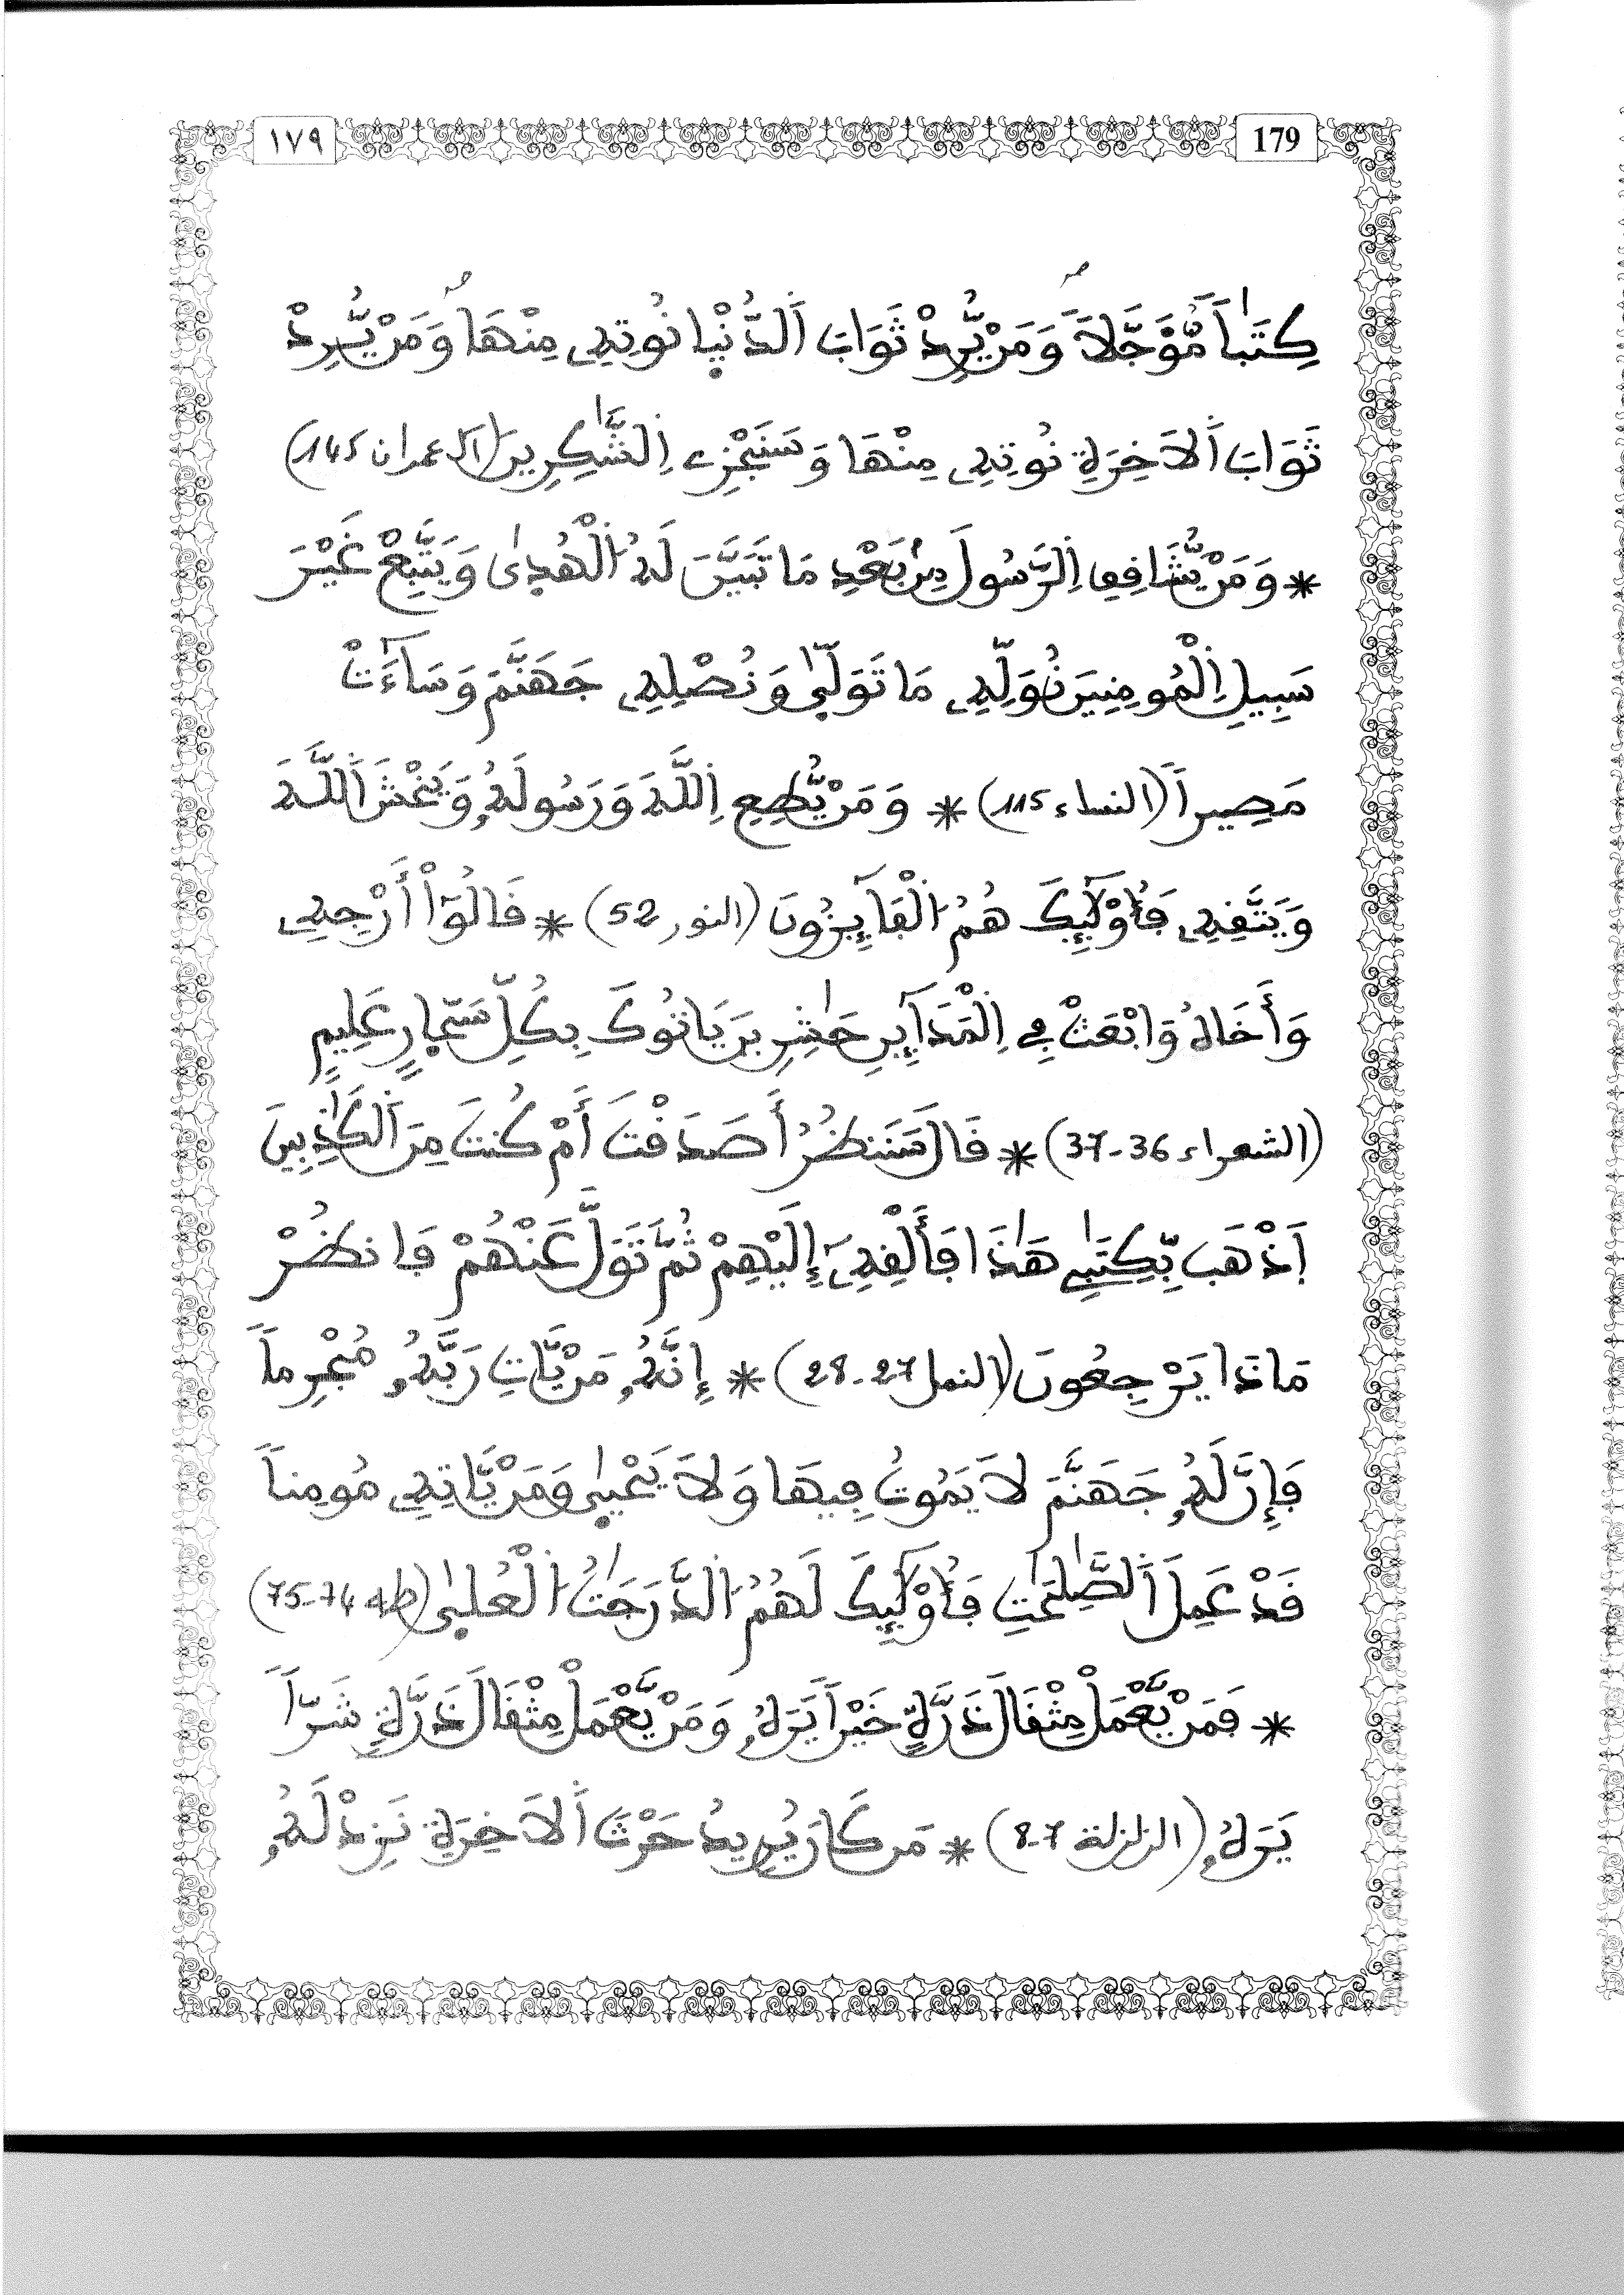 179 ١٧٩
كِتَٰباً مُّؤَجَّلاً وَمَنْ يُّرِدْ ثَوَابَ اَلدُّنْيٜا نُوتِهِۦ مِنْهَا وَمَنْ يُّرِدْ
ثَوَابَ اَلَاخِرَةِ نُوتِهِۦ مِنْهَا وَسَنَجْزِے اِلشَّٰكِرِينَ (آل عمران 145)
* وَمَنْ يُّشَافِقِ اِلرَّسُولَ مِنۢ بَعْدِ مَا تَبَيَّنَ لَهُ اُلْهُدٜىٰ وَيَتَّبِعْ غَيْرَ
سَبِيلِ اِلْمُومِنِينَ نُوَلِّهِۦ مَا تَوَلّٜىٰ وَنُصْلِهِۦ جَهَنَّمَ وَسَآءَتْ
مَصِيراً (النساء 115) * وَمَنْ يُّطِعِ اِللَّهَ وَرَسُولَهُۥ وَيَخْشَ اَللَّهَ
وَيَتَّقِهِۦ فَأُوْلَٰٓئِكَ هُمُ اُلْفَآئِزُونَ (النور 52) * قَالُوٓاْ أَرْجِهِۦ
وَأَخَاهُ وَابْعَثْ فِے اِلْمَدَآئِنِ حَٰشِرِينَ يَاتُوكَ بِكُلِّ سَحّٜارٍ عَلِيمٍ
(الشعراء 36-37) * قَالَ سَنَنظُرُ أَصَدَقْتَ أَمْ كُنتَ مِنَ اَلْكَٰذِبِينَ
اَذْهَب بِّكِتَٰبِے هَٰذَا فَأَلْقِهِۦٓ إِلَيْهِمْ ثُمَّ تَوَلَّ عَنْهُمْ فَانظُرْ
مَاذَا يَرْجِعُونَ (النمل 27-28) * إِنَّهُۥ مَنْ يَّاتِ رَبَّهُۥ مُجْرِماً
فَإِنَّ لَهُۥ جَهَنَّمَ لَا يَمُوتُ فِيهَا وَلَا يَحْيٜىٰ وَمَنْ يَّاتِهِۦ مُومِناً
قَدْ عَمِلَ اَلصَّٰلِحَٰتِ فَأُوْلَٰٓئِكَ لَهُمُ اُلدَّرَجَٰتُ اُلْعُلٜىٰ (طه 74-75)
* فَمَنْ يَّعْمَلْ مِثْقَالَ ذَرَّةٍ خَيْراً يَرَهُۥ وَمَنْ يَّعْمَلْ مِثْقَالَ ذَرَّةٍ شَرّاً
يَرَهُۥ (الزلزلة 7-8) * مَن كَانَ يُرِيدُ حَرْثَ اَلَاخِرَةِ نَزِدْ لَهُۥ